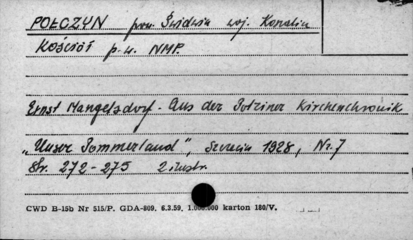 POŁCZYN pow. Świdwin woj. Koszalin
Kościół p.w. NMP.
Ernst Mangelsdorf - Aus der Polziner Kirchenchronik
"Unser Pommerland", Szczecin 1928, Nr. 7
Str. 272-275 2 ilustr.
CWD B-15b Nr 515/P. GDA-809, 6.3.59, 1.000.000 karton 180/V.